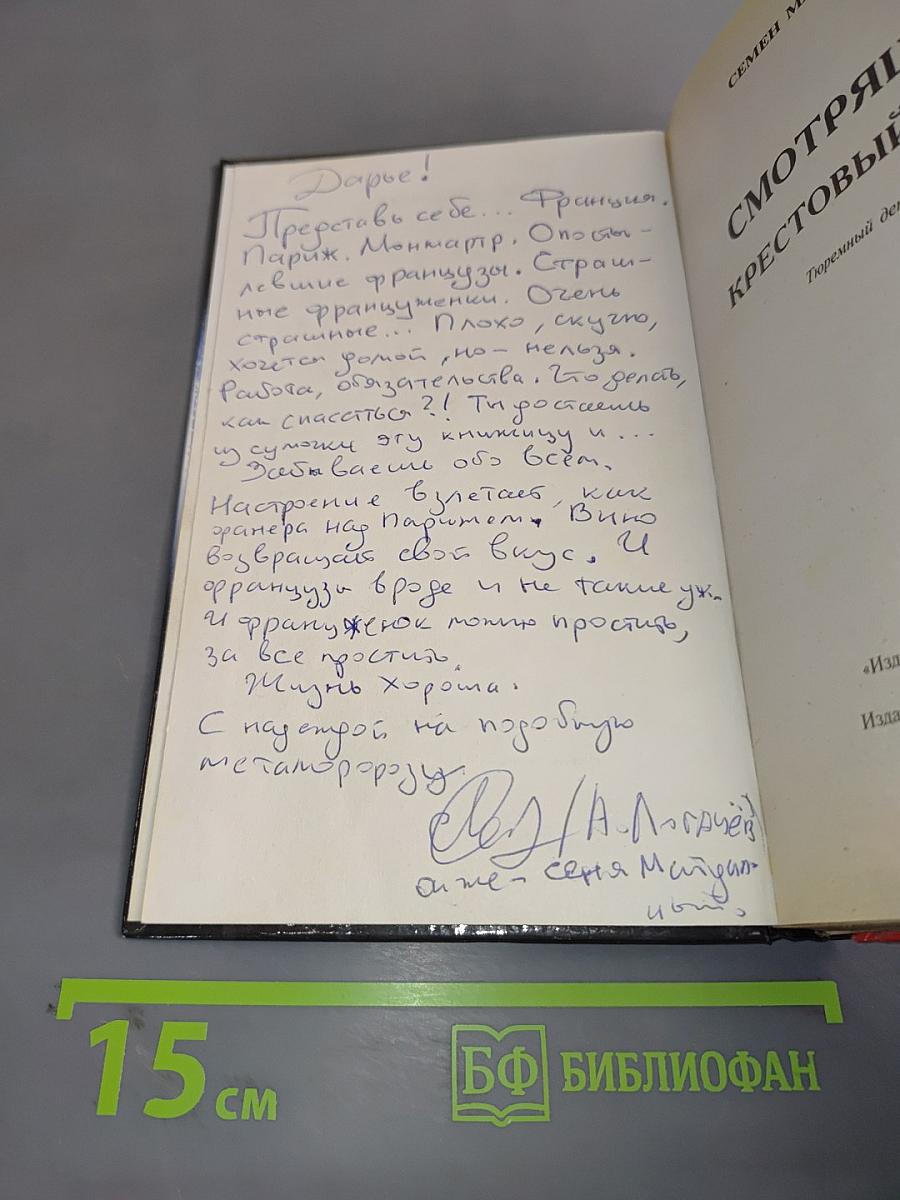 Дарье!
Представь себе... Франция.
Париж. Монмартр. Опосты-
левшие французы. Страш-
ные француженки. Очень
страшные... Плохо, скучно,
хочется домой, но – нельзя.
Работа, обязательства. Что делать,
как спасаться?! Ты достаешь
из сумочки эту книжицу и...
Забываешь обо всём.
Настроение взлетает, как
фанера над Парижем. Вино
возвращает свой вкус. И
французы вроде и не такие уж.
И француженок можно простить,
за все простить.
Жизнь хороша.
С надеждой на подобную
метаморфозу
/А. Логачёв
он же – Сеня Майдан-
ный.
СЕМЕН М
СМОТРЯЩ
КРЕСТОВЫЙ
Тюремный де
«Изд
Изда
15 см
БФ БИБЛИОФАН